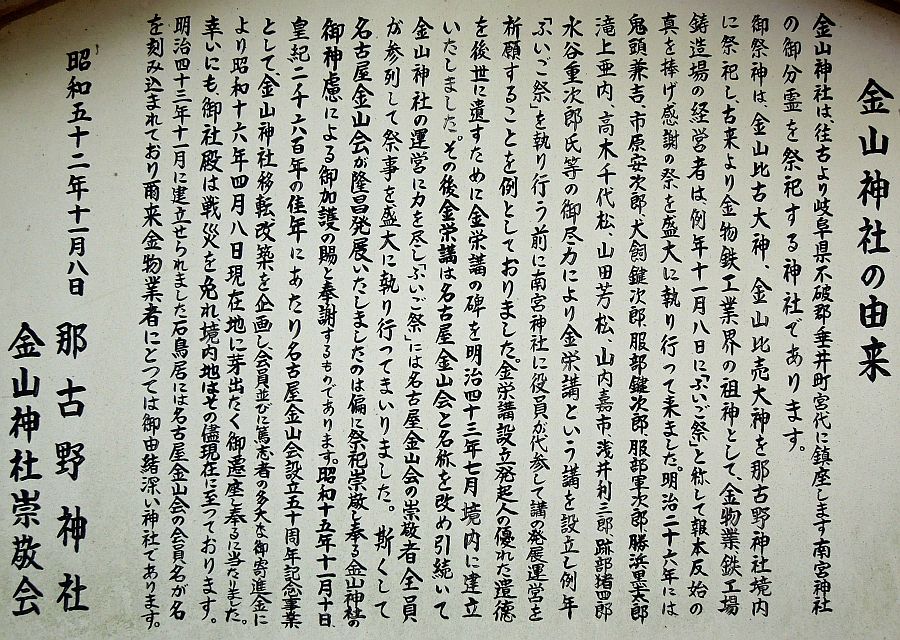 金山神社の由来
金山神社は、往古より岐阜県不破郡垂井町宮代に鎮座します南宮神社
の御分霊を祭祀する神社であります。
御祭神は、金山比古大神、金山比売大神を那古野神社境内
に祭祀し、古来より金物鉄工業界の祖神として、金物業鉄工場
鋳造場の経営者は、例年十一月八日に「ふいご祭」と称して報本反始の
真を捧げ感謝の祭を盛大に執り行って来ました。明治二十六年には
鬼頭兼吉、市原安次郎、犬飼鍵次郎、服部鍵次郎、服部軍次郎、勝浜里太郎
滝上亜内、高木千代松、山田芳松、山内嘉市、浅井利三郎、跡部猪四郎
水谷重次郎氏等の御尽力により金栄講という講を設立し例年
「ふいご祭」を執り行う前に南宮神社に役員が代参して講の発展運営を
祈願することを例としておりました。金栄講設立発起人の優れた遺徳
を後世に遺すために金栄講の碑を明治四十三年七月境内に建立
いたしました。その後金栄講は名古屋金山会と名称を改め引続いて
金山神社の運営に力を尽し「ふいご祭」には名古屋金山会の崇敬者全員
が参列して祭事を盛大に執り行ってまいりました。斯くして
名古屋金山会が隆昌発展いたしましたのは偏に祭祀崇敬し奉る金山神社の
御神慮による御加護の賜と奉謝するものであります。昭和十五年十一月十日、
皇紀二千六百年の佳年にあたり名古屋金山会設立五十周年記念事業
として金山神社移転、改築を企画し、会員並びに篤志者の多大な御寄進金に
より昭和十六年四月八日現在地に芽出たく御遷座し奉るに当たりました。
幸いにも、御社殿は戦災を免れ境内地はその儘現在に至っております。
明治四十三年十一月に建立せられました石鳥居には名古屋金山会の会員名が名
を刻み込まれており爾来金物業者にとっては御由緒深い神社であります。
昭和五十二年十一月八日
那古野神社
金山神社崇敬会